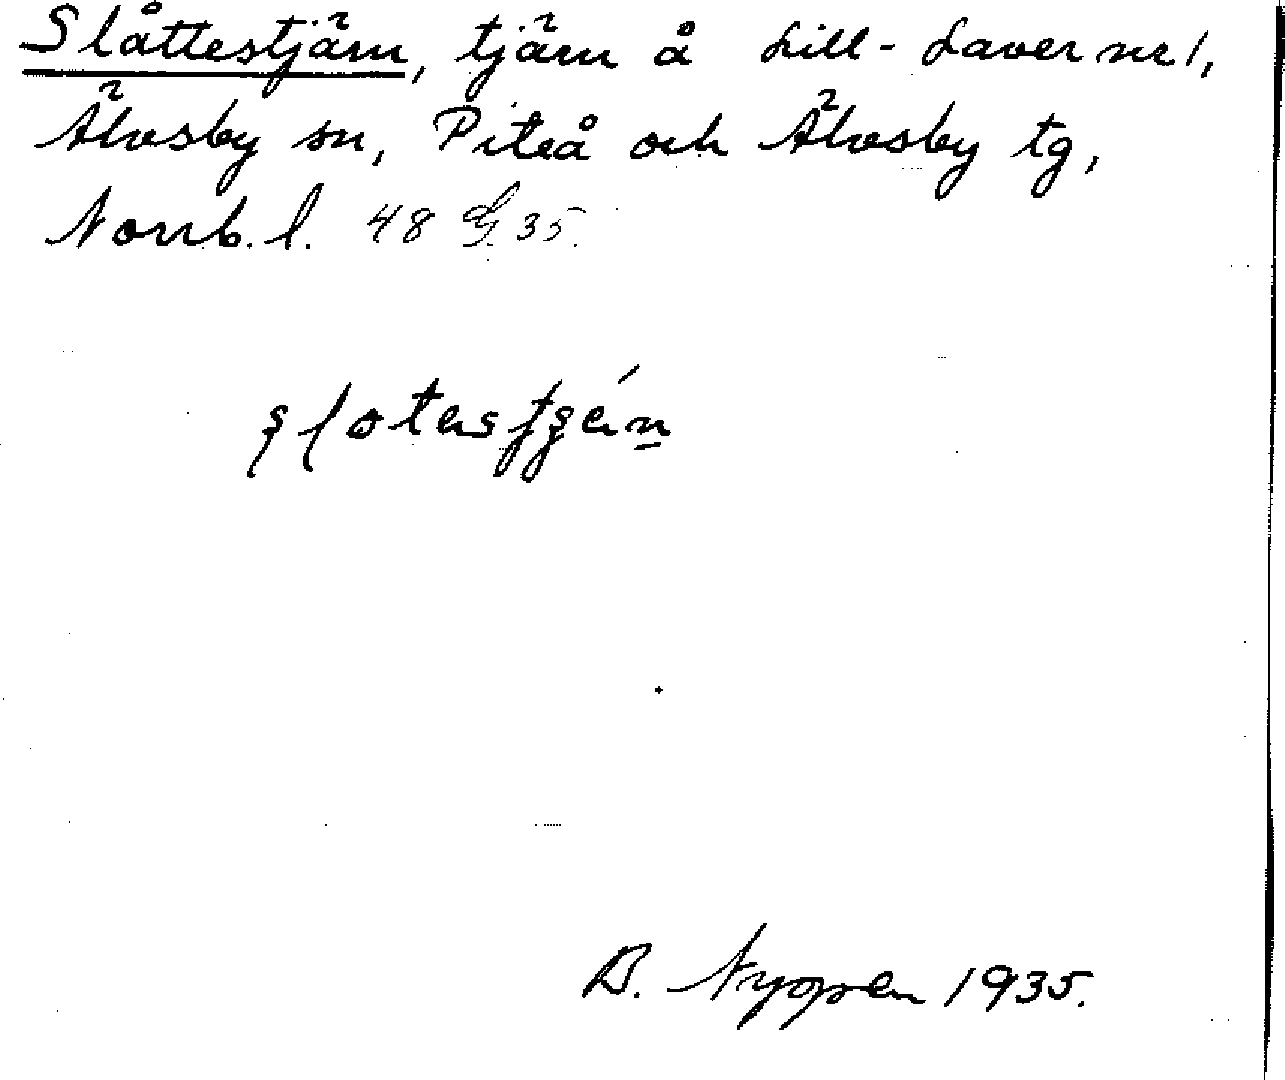 Slåttestjärn, tjärn å Lill-Laver nr 1,
Älvsby sn, Piteå och Älvsby tg,
Norrb. l. 48 G 35.
B. Nygren 1935.